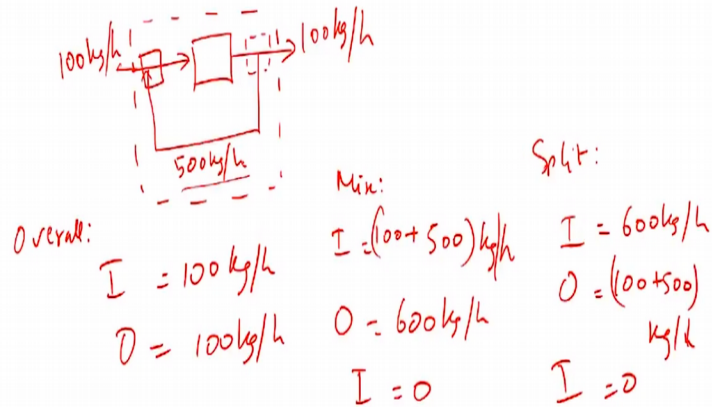 100kg/h
100kg/h
500kg/h
Overall:
I = 100kg/h
O = 100kg/h
Mix:
I = (100+500) kg/h
O = 600kg/h
I = O
Split:
I = 600kg/h
O = (100+500)
kg/h
I = O